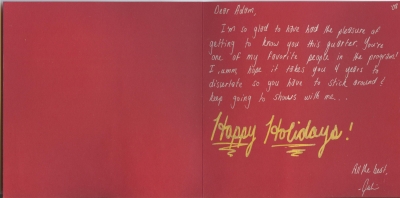 '08
Dear Adam,
I'm so glad to have had the pleasure of
getting to know you this quarter. You're
one of my favorite people in the program!
I...umm, hope it takes you 4 years to
disertate so you have to stick around &
keep going to shows with me...
Happy Holidays!
All the best,